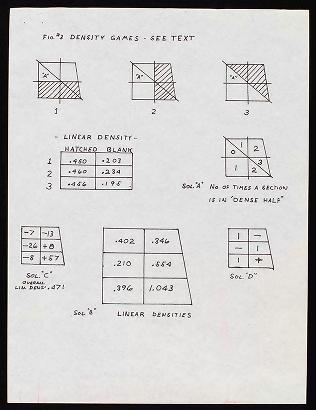 FIG #2 DENSITY GAMES - SEE TEXT
"A" "A" "A"
1 2 3
- LINEAR DENSITY -
HATCHED BLANK
1 .480 .203
2 .460 .234
3 .456 .195
0 1 2
1 2 3
SOL "A" NO. OF TIMES A SECTION
IS IN "DENSE HALF"
-7 -13
-26 +8
-8 +57
SOL. "C"
OVERALL
LIN DENS. .471
.402 .346
.210 .554
.396 1.043
SOL "B" LINEAR DENSITIES
1 -
- 1
1 +
SOL "D"